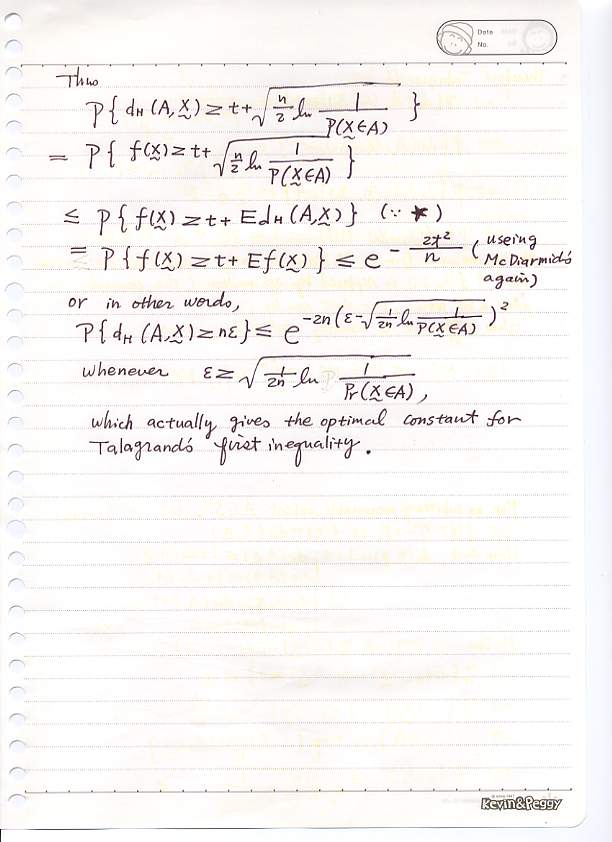 Date
No.
Thus
P{ d_H (A, X̰) ≥ t + √(n/2 ln 1/P(X̰∈A)) }
= P{ f(X̰) ≥ t + √(n/2 ln 1/P(X̰∈A)) }
≤ P{ f(X̰) ≥ t + E d_H (A, X̰) } (∵ ★)
= P{ f(X̰) ≥ t + E f(X̰) } ≤ e^{- 2t²/n} ( useing McDiarmid's again)
or in other words,
P{ d_H (A, X̰) ≥ nε } ≤ e^{-2n(ε - √(1/2n ln 1/P(X̰∈A)))²}
whenever ε ≥ √(1/2n ln 1/Pr(X̰∈A)),
which actually gives the optimal constant for
Talagrand's first inequality.
Kevin&Peggy